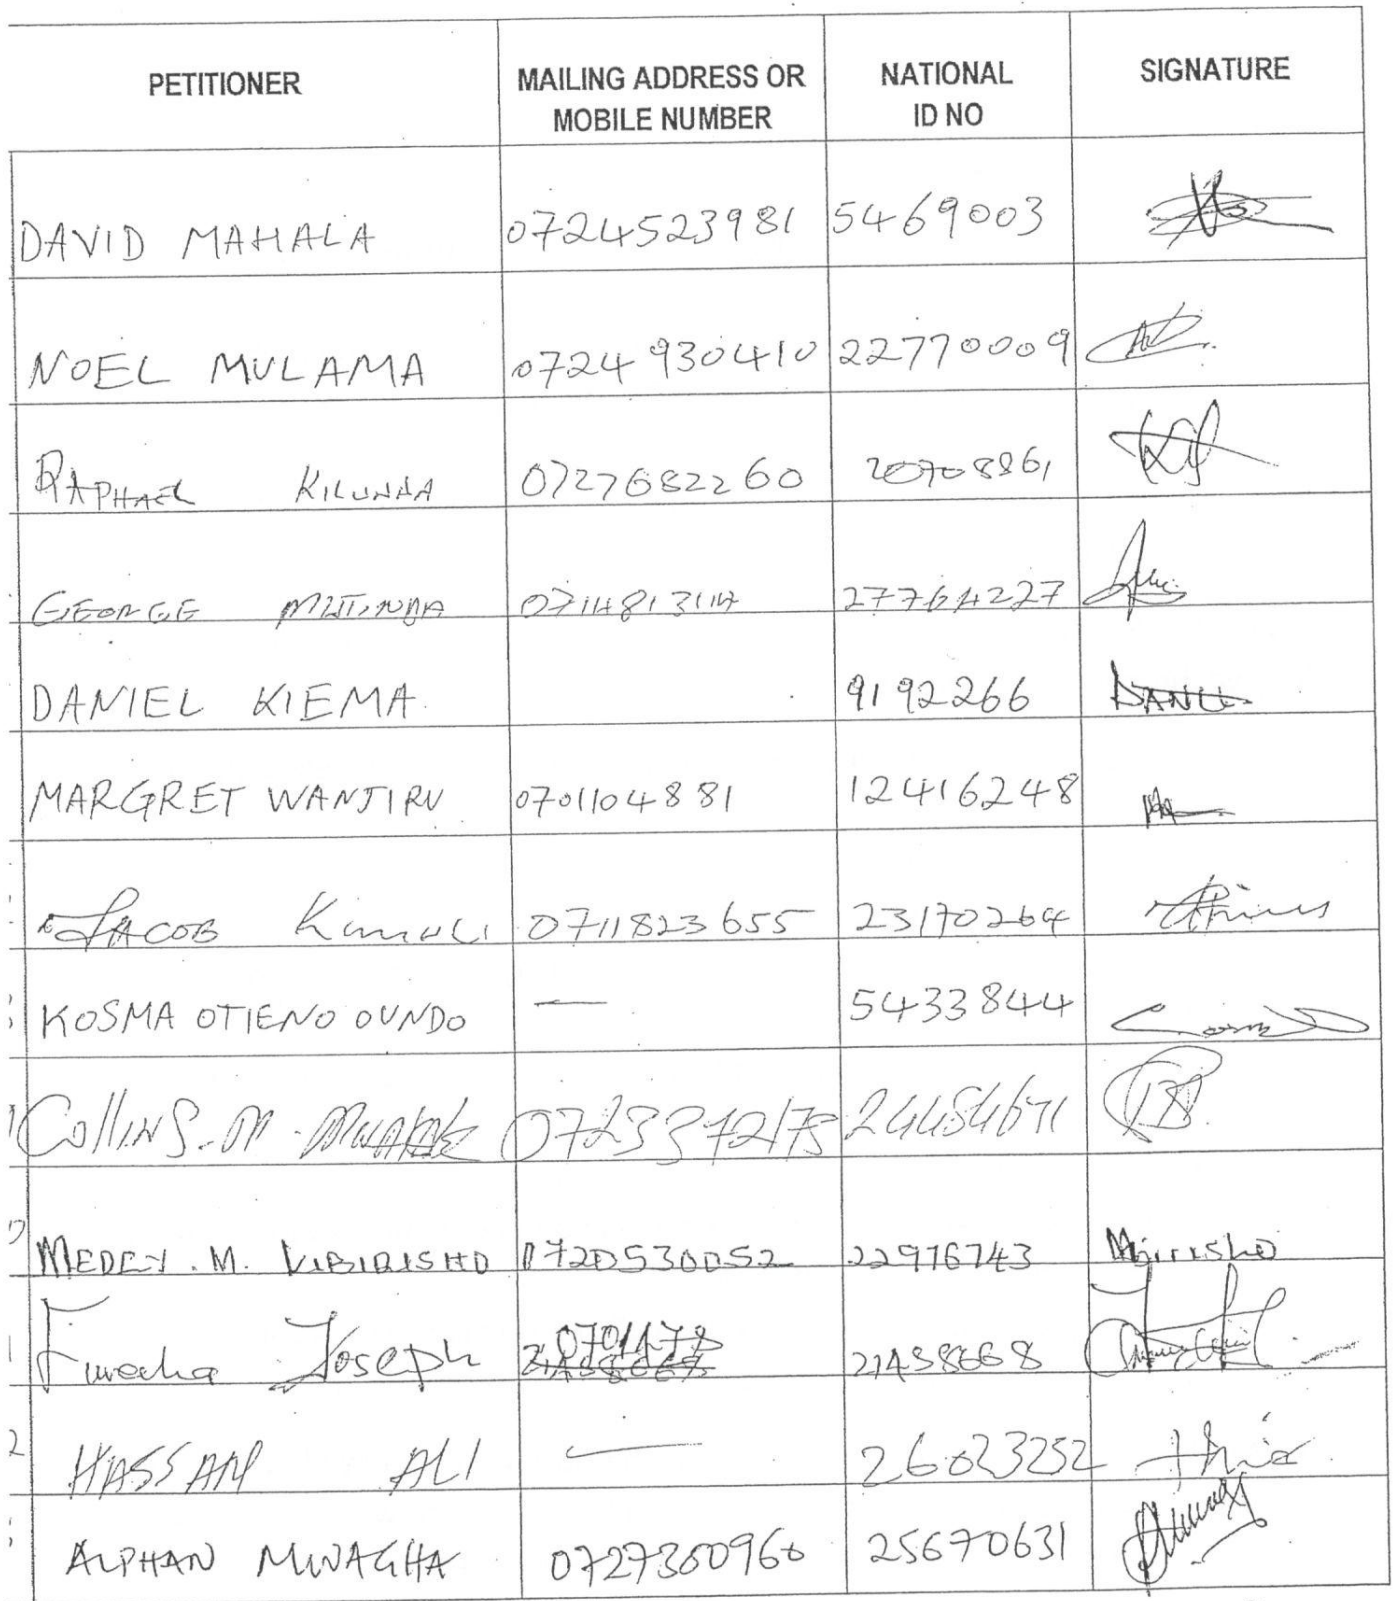 PETITIONER MAILING ADDRESS OR MOBILE NUMBER NATIONAL ID NO SIGNATURE
DAVID MAHALA 0724523981 5469003
NOEL MULAMA 0724930410 22770009
RAPHAEL KILUNDA 0727682260 20708861
GEORGE 27764227
DANIEL KIEMA 9192266
MARGRET WANJIRU 0701104881 12416248
JACOB 0711823655 23170264
KOSMA OTIENO OUNDO — 5433844
COLLINS. M.
MEDEY. M. KIBIRISHO 0720530052 22976743
Joseph 21438668
HASSAN ALI — 26023252
ALPHAN MWAGHA 0727300960 25670631